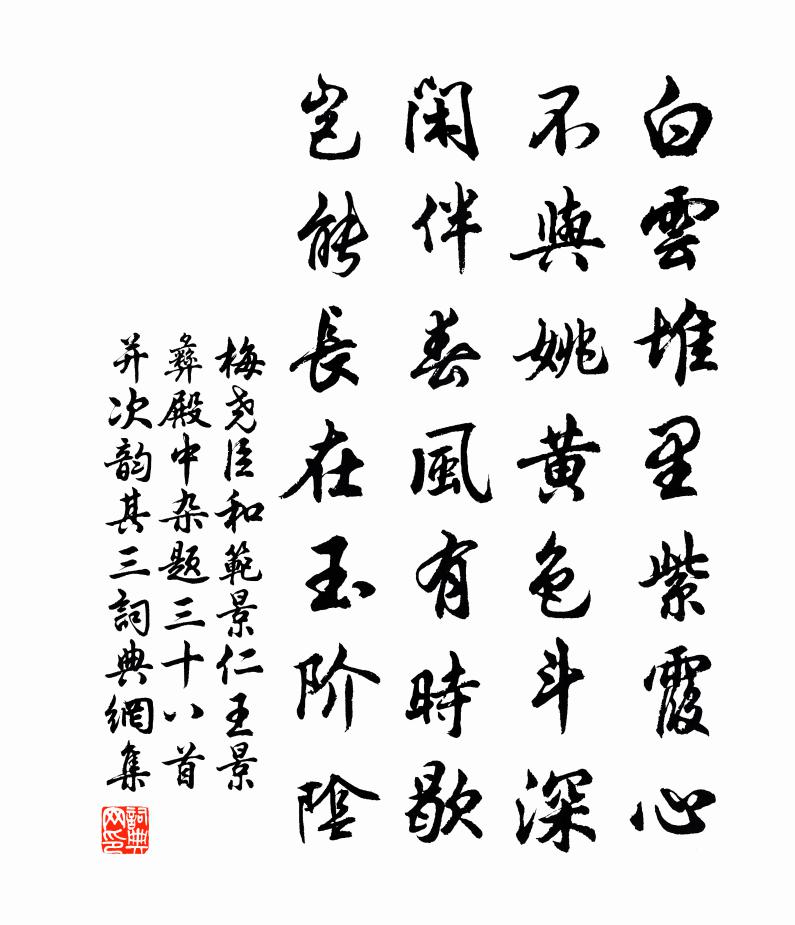 白雲堆里紫霞心
不與姚黄色斗深
閑伴春風有時歇
岂能長在玉阶陰
梅尧臣和範景仁王景
彝殿中杂题三十八首
并次韵其三詞典網集
詞典网印